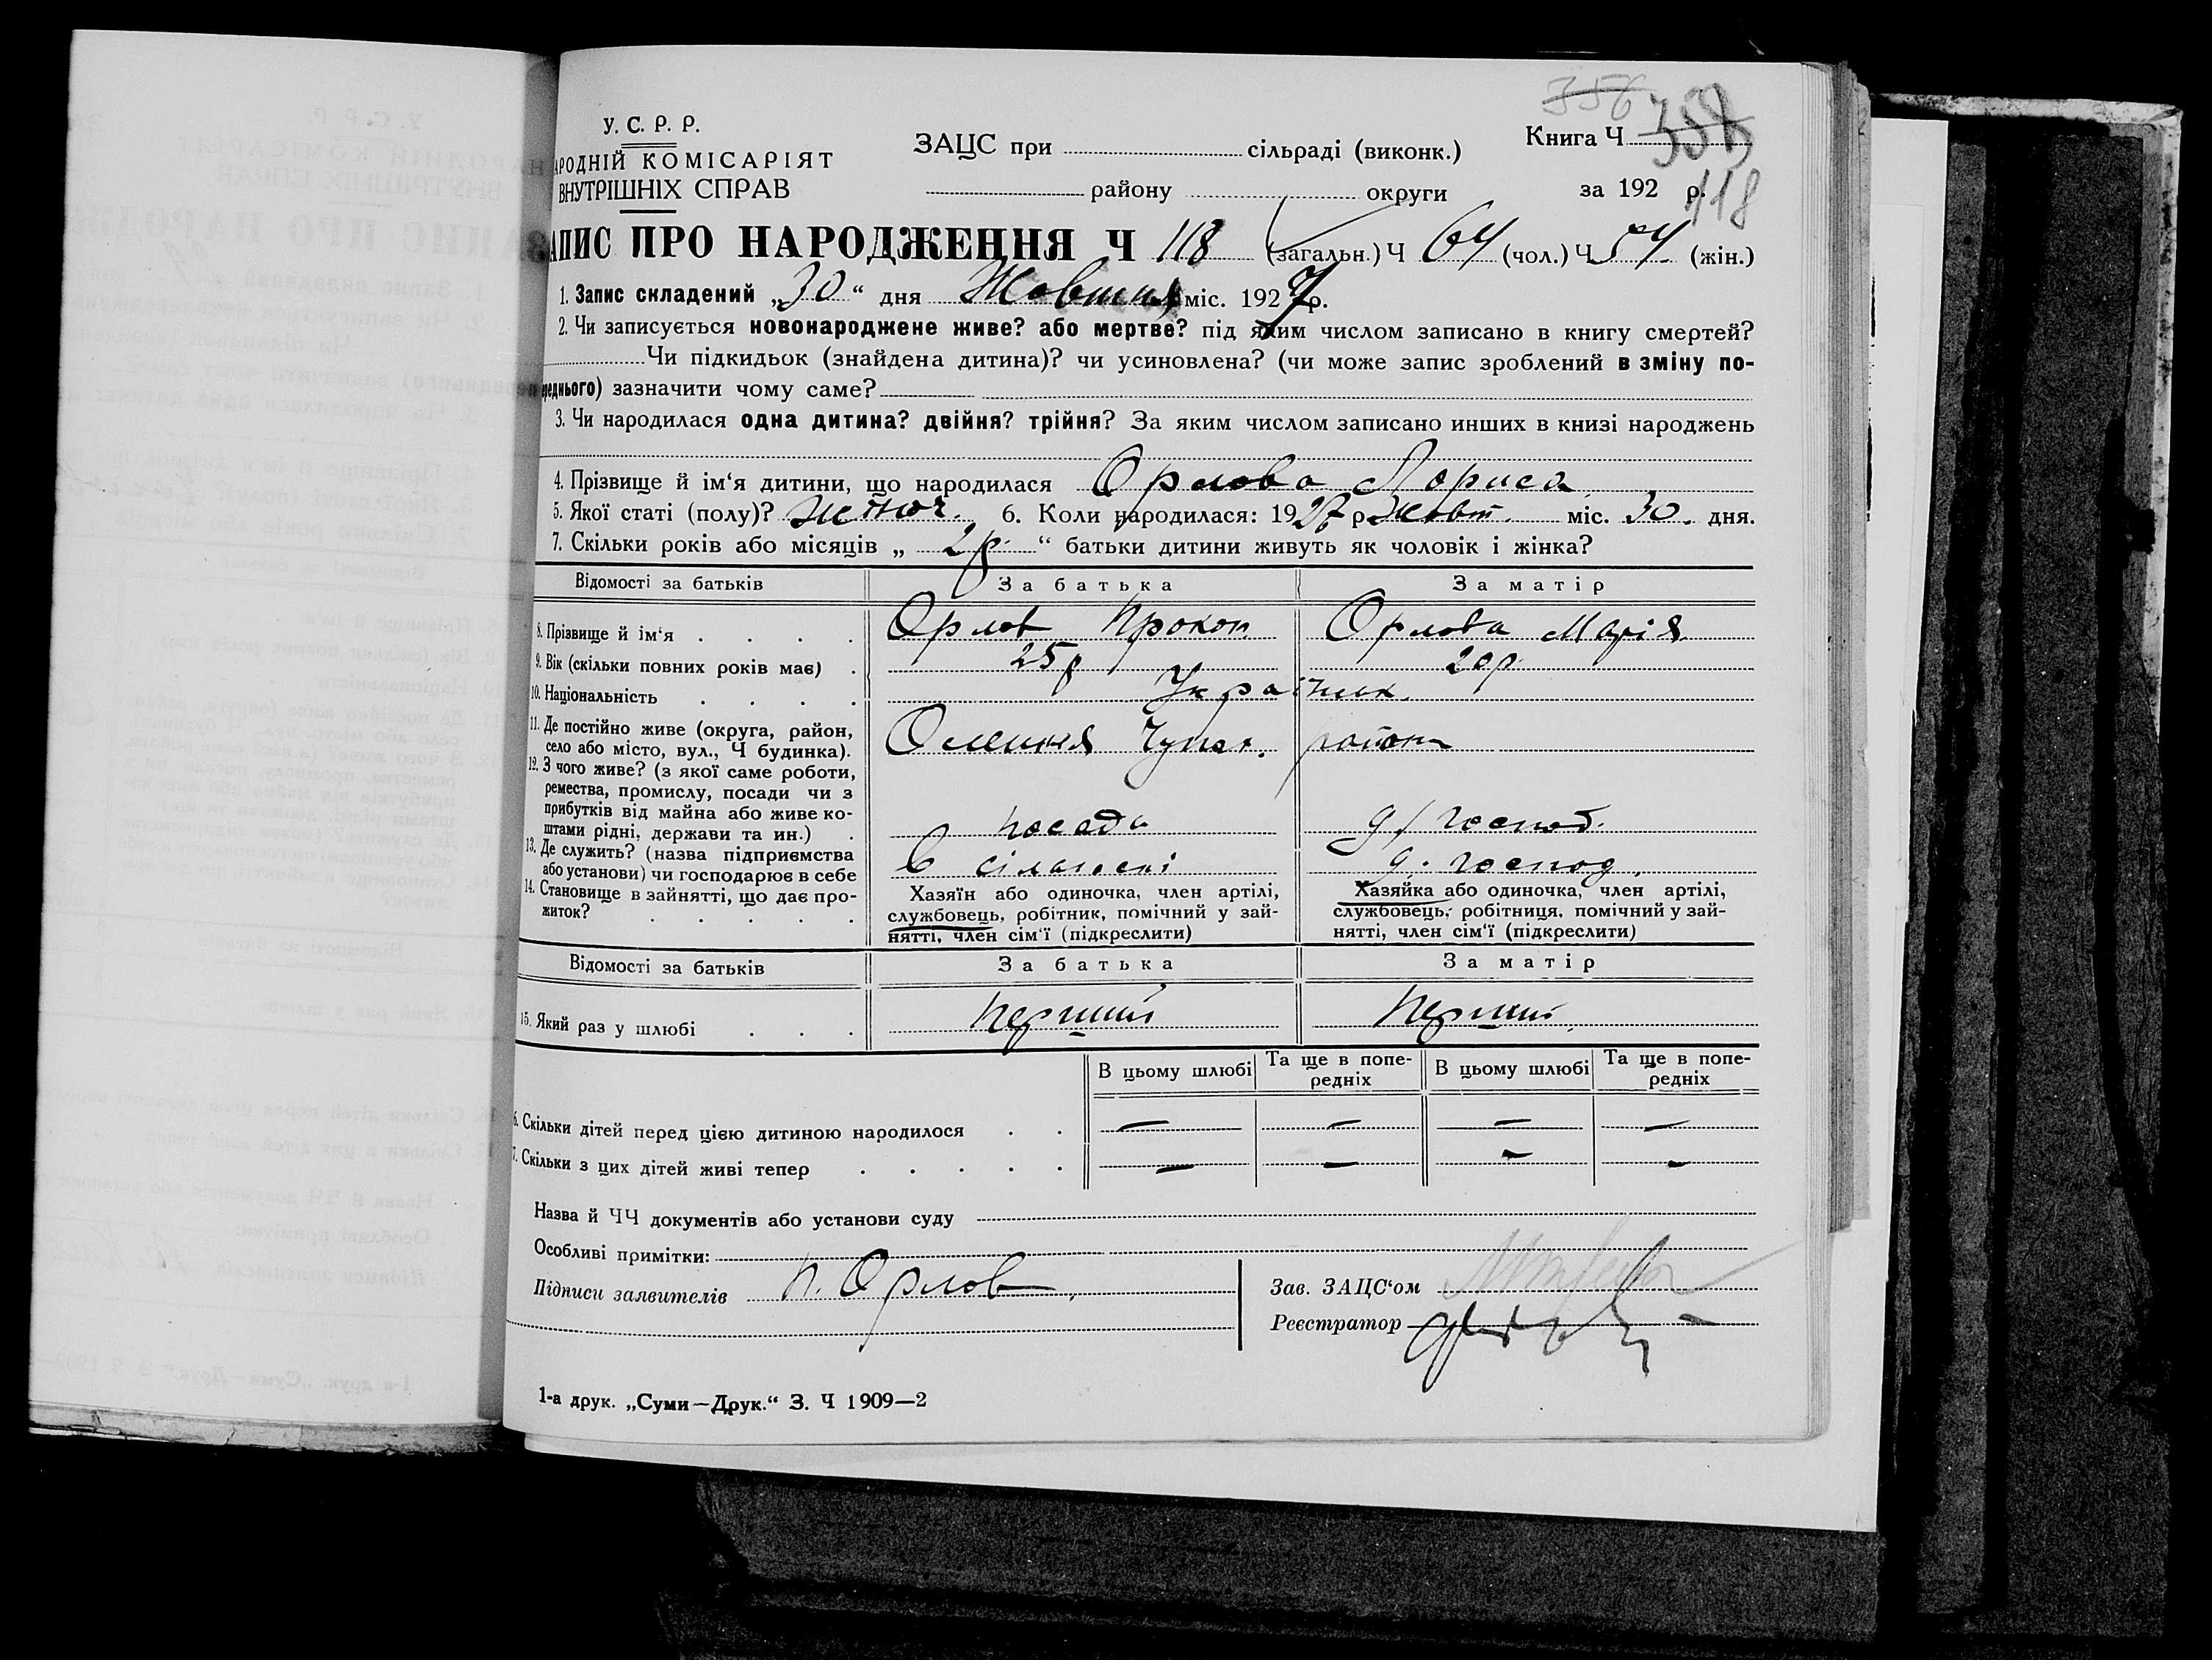 356 358
У. С. Р. Р.
АРОДНІЙ КОМІСАРІЯТ
ВНУТРІШНІХ СПРАВ
ЗАЦС при сільраді (виконк.)
району округи
Книга Ч
за 192 р.
118
ЗАПИС ПРО НАРОДЖЕННЯ Ч 118 (загальн.) Ч 64 (чол.) Ч 54 (жін.)
1. Запис складений „30“ дня Жовтня міс. 1927 р.
2. Чи записується новонароджене живе? або мертве? під яким числом записано в книгу смертей?
Чи підкидьок (знайдена дитина)? чи усиновлена? (чи може запис зроблений в зміну по-
реднього) зазначити чому саме?
3. Чи народилася одна дитина? двійня? трійня? За яким числом записано инших в книзі народжень
4. Прізвище й ім‘я дитини, що народилася Орлова Лориса
5. Якої статі (полу)? жіноч. 6. Коли народилася: 1927 р Жовт. міс. 30. дня.
7. Скільки років або місяців „ 2 р. “ батьки дитини живуть як чоловік і жінка?
Відомості за батьків За батька За матір
8. Прізвище й ім‘я . . . . Орлов Прокоп Орлова Марія
9. Вік (скільки повних років має) . 25 р 20 р
10. Національність . . . . Україник.
11. Де постійно живе (округа, район,
село або місто, вул., Ч будинка). район
12. З чого живе? (з якої саме роботи,
ремества, промислу, посади чи з
прибутків від майна або живе ко-
штами рідні, держави та ин.) . посада д/господ.
13. Де служить? (назва підприємства
або установи) чи господарює в себе в д. господ.
14. Становище в зайнятті, що дає про-
житок? . . . .
Хазяїн або одиночка, член артілі,
службовець, робітник, помічний у зай-
нятті, член сім‘ї (підкреслити)
Хазяйка або одиночка, член артілі,
службовець, робітниця, помічний у зай-
нятті, член сім‘ї (підкреслити)
Відомості за батьків За батька За матір
15. Який раз у шлюбі . . . перший перший
В цьому шлюбі Та ще в попе-редніх В цьому шлюбі Та ще в попе-редніх
6. Скільки дітей перед цією дитиною народилося . . — — — —
7. Скільки з цих дітей живі тепер . . . . . — — — —
Назва й ЧЧ документів або установи суду
Особливі примітки:
Підписи заявителів П. Орлов
Зав. ЗАЦС‘ом
Реєстратор
1-а друк. „Суми—Друк.“ З. Ч 1909—2